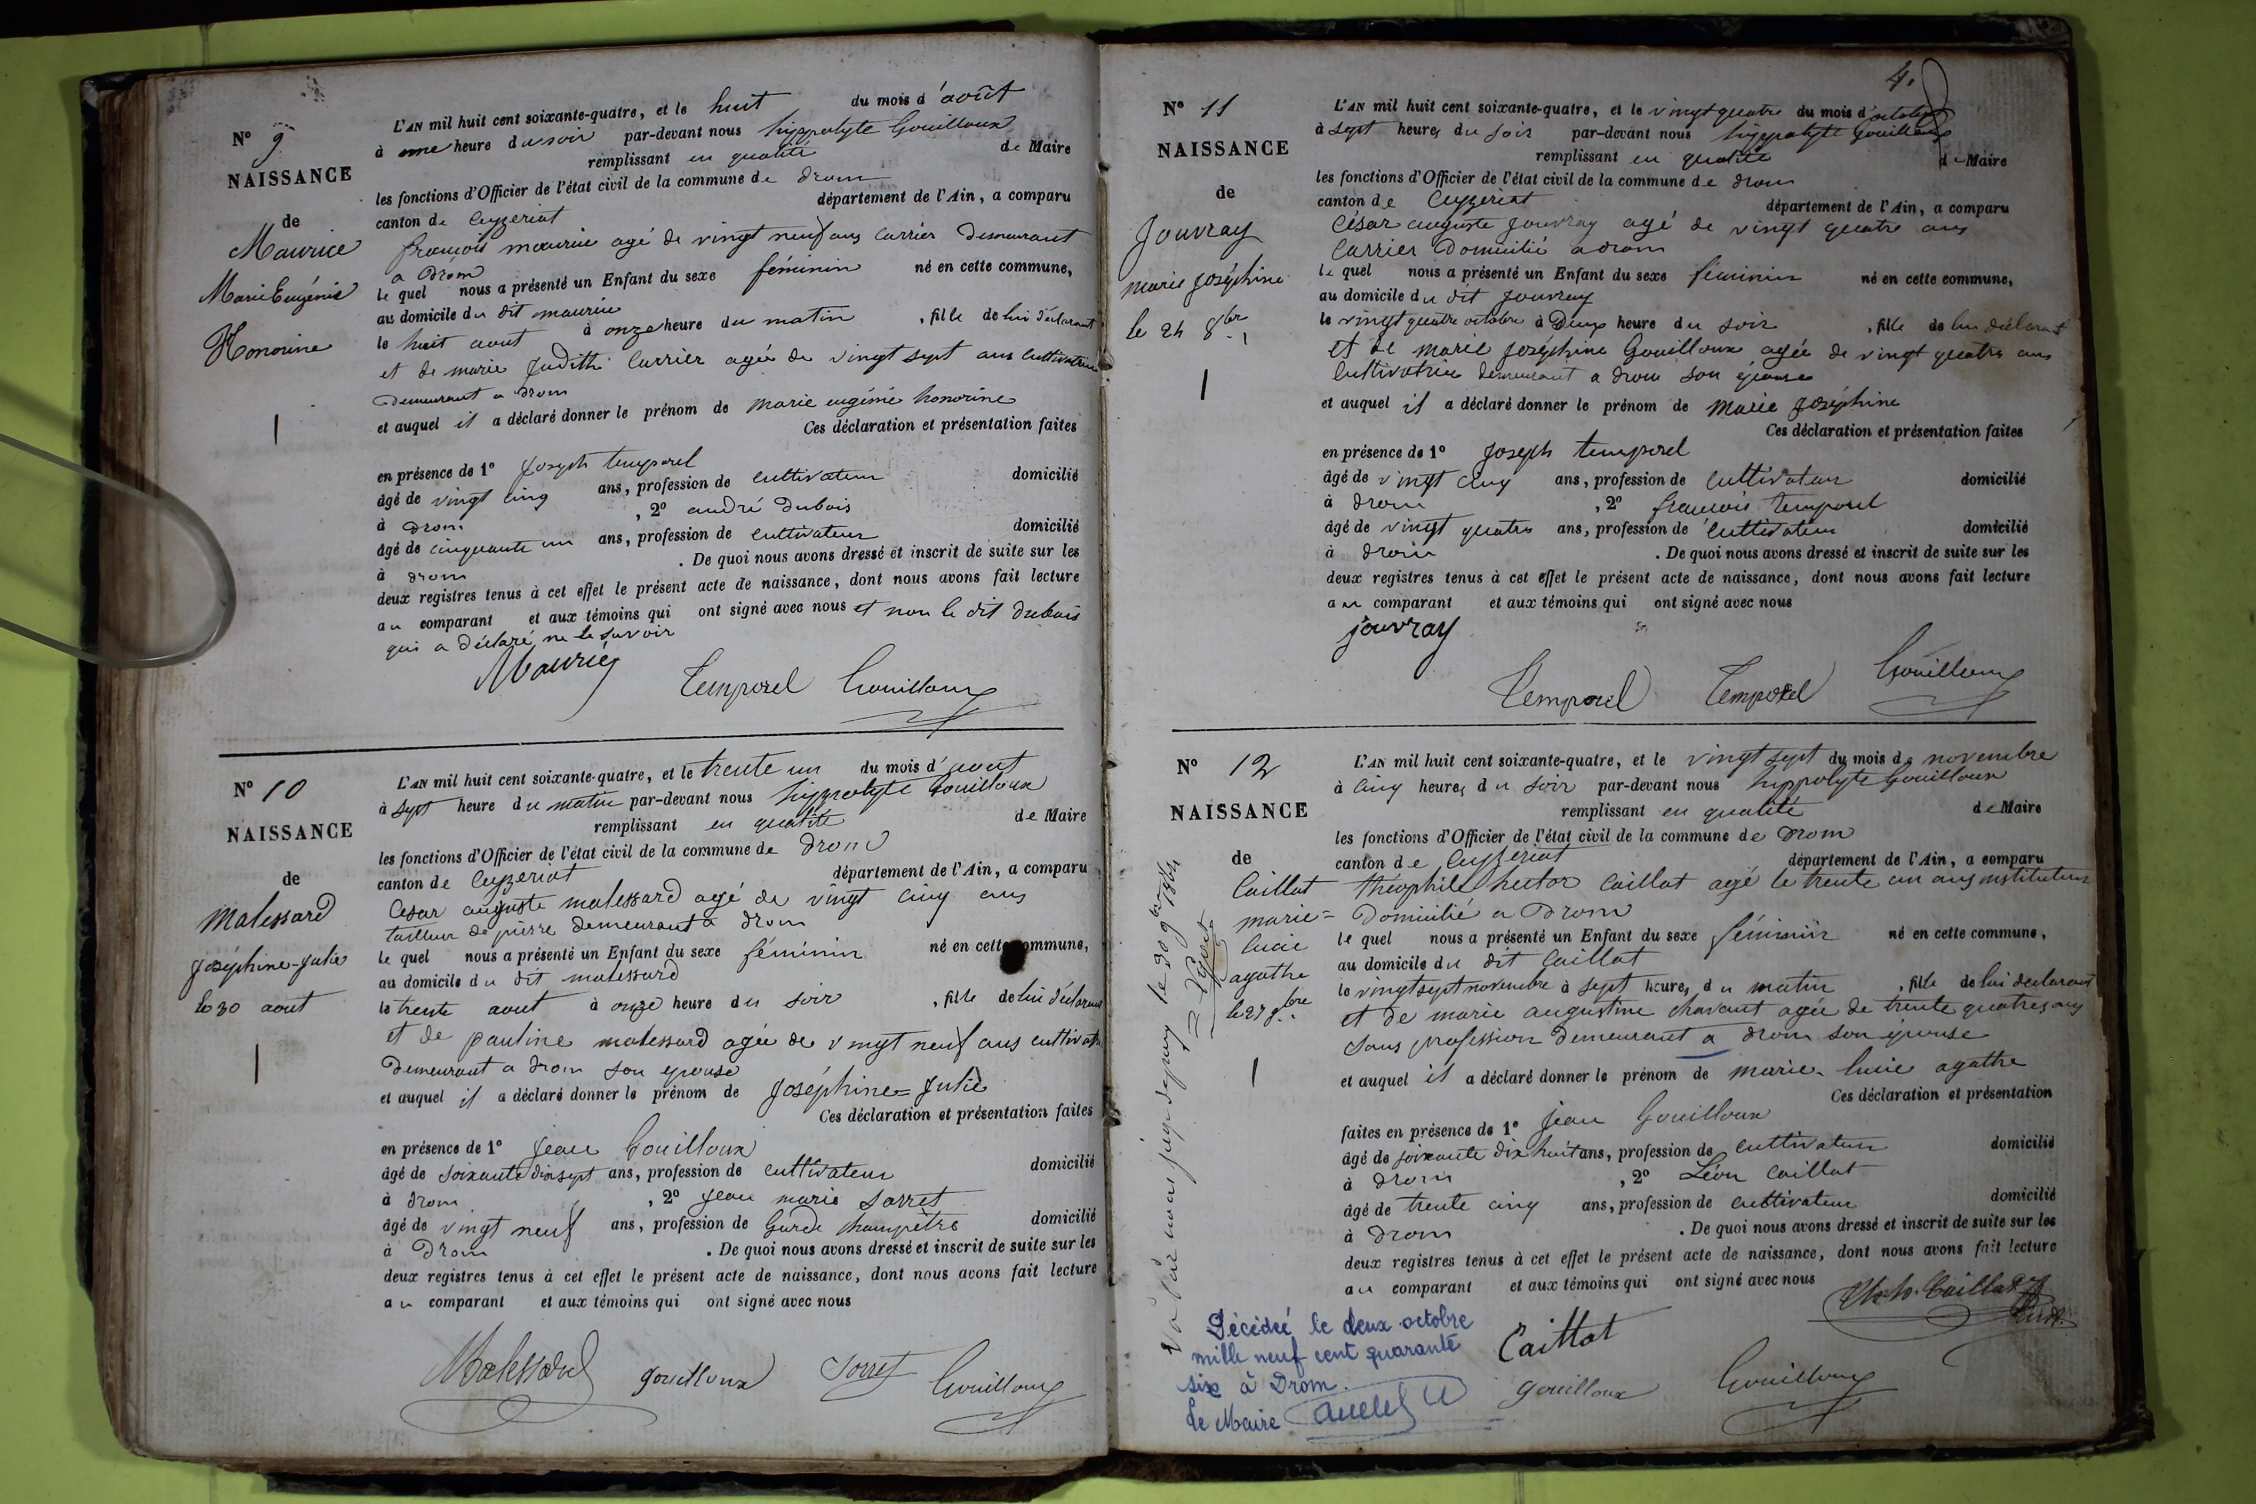 N° 9
NAISSANCE
de
Maurice
Marie Eugénie
Honorine
L'AN mil huit cent soixante-quatre, et le huit du mois d'août
à une heure du soir par-devant nous hyppolyte Gouilloux
remplissant en qualité de Maire
les fonctions d'Officier de l'état civil de la commune de drom
canton de Ceyzeriat département de l'Ain, a comparu
françois maurice agé de vingt neuf ans carrier demeurant
a drom
le quel nous a présenté un Enfant du sexe féminin né en cette commune,
au domicile du dit maurice
le huit aout à onze heure du matin, fille de lui déclarant
et de marie Judith Carrier agée de vingt sept ans cultivatrice
demeurant a drom
et auquel il a déclaré donner le prénom de marie eugénie honorine
Ces déclaration et présentation faites
en présence de 1° Joseph temporel
âgé de vingt cinq ans, profession de cultivateur domicilié
à drom, 2° andré dubois
âgé de cinquante un ans, profession de cultivateur domicilié
à drom. De quoi nous avons dressé et inscrit de suite sur les
deux registres tenus à cet effet le présent acte de naissance, dont nous avons fait lecture
au comparant et aux témoins qui ont signé avec nous et non le dit dubois
qui a déclaré ne le savoir
Maurice Temporel Gouilloux
N° 10
NAISSANCE
de
Malessard
Joséphine-Julie
le 30 aout
L'AN mil huit cent soixante-quatre, et le trente un du mois d'aout
à sept heure du matin par-devant nous hyppolyte Gouilloux
remplissant en qualité de Maire
les fonctions d'Officier de l'état civil de la commune de drom
canton de Ceyzeriat département de l'Ain, a comparu
César auguste malessard agé de vingt cinq ans
tailleur de pierre demeurant a drom
le quel nous a présenté un Enfant du sexe féminin né en cette commune,
au domicile du dit malessard
le trente aout à onze heure du soir, fille de lui déclarant
et de pauline malessard agée de vingt neuf ans cultivatr
demeurant a drom son epouse
et auquel il a déclaré donner le prénom de Joséphine=Julie
Ces déclaration et présentation faites
en présence de 1° Jean Gouilloux
âgé de soixante dix sept ans, profession de cultivateur domicilié
à drom, 2° Jean marie Sorret
âgé de vingt neuf ans, profession de Garde champêtre domicilié
à Drom. De quoi nous avons dressé et inscrit de suite sur les
deux registres tenus à cet effet le présent acte de naissance, dont nous avons fait lecture
au comparant et aux témoins qui ont signé avec nous
Malessard gouilloux Sorret Gouilloux
4.
N° 11
NAISSANCE
de
Jouvray
marie Joséphine
le 24 8bre
L'AN mil huit cent soixante-quatre, et le vingt quatre du mois d'octobre
à sept heures du soir par-devant nous hyppolyte Gouilloux
remplissant en qualité de Maire
les fonctions d'Officier de l'état civil de la commune de drom
canton de Ceyzeriat département de l'Ain, a comparu
César auguste Jouvray agé de vingt quatre ans
Carrier domicilié a drom
le quel nous a présenté un Enfant du sexe féminin né en cette commune,
au domicile du dit Jouvray
le vingt quatre octobre à Deux heure du soir, fille de lui déclarant
et de marie Joséphine Gouilloux agée de vingt quatre ans
Cultivatrice demeurant a drom son épouse
et auquel il a déclaré donner le prénom de Marie Joséphine
Ces déclaration et présentation faites
en présence de 1° Joseph temporel
âgé de vingt cinq ans, profession de cultivateur domicilié
à drom, 2° françois temporel
âgé de vingt quatre ans, profession de cultivateur domicilié
à drom. De quoi nous avons dressé et inscrit de suite sur les
deux registres tenus à cet effet le présent acte de naissance, dont nous avons fait lecture
au comparant et aux témoins qui ont signé avec nous
jouvray
Temporel Temporel Gouilloux
N° 12
NAISSANCE
de
Caillat
marie=
lucie
agathe
le 27 9bre
L'AN mil huit cent soixante-quatre, et le vingt sept du mois de novembre
à cinq heures du soir par-devant nous hyppolyte Gouilloux
remplissant en qualité de Maire
les fonctions d'Officier de l'état civil de la commune de Drom
canton de Ceyzeriat département de l'Ain, a comparu
théophile hector Caillat agé de trente un ans instituteur
Domicilié a Drom
le quel nous a présenté un Enfant du sexe féminin né en cette commune,
au domicile du dit Caillat
le vingt sept novembre à sept heures du matin, fille de lui déclarant
et de marie augustine chavant agée de trente quatre ans
sans profession demeurant a drom son épouse
et auquel il a déclaré donner le prénom de marie- lucie agathe
Ces déclaration et présentation
faites en présence de 1° Jean Gouilloux
âgé de soixante dix huit ans, profession de cultivateur domicilié
à drom, 2° Léon Caillat
âgé de trente cinq ans, profession de cultivateur domicilié
à drom. De quoi nous avons dressé et inscrit de suite sur les
deux registres tenus à cet effet le présent acte de naissance, dont nous avons fait lecture
au comparant et aux témoins qui ont signé avec nous
Caillat
Caillat
gouilloux Gouilloux
Vu par nous juge de paix le 30 9bre 1864
Décédée le deux octobre
mille neuf cent quarante
six à Drom.
Le Maire